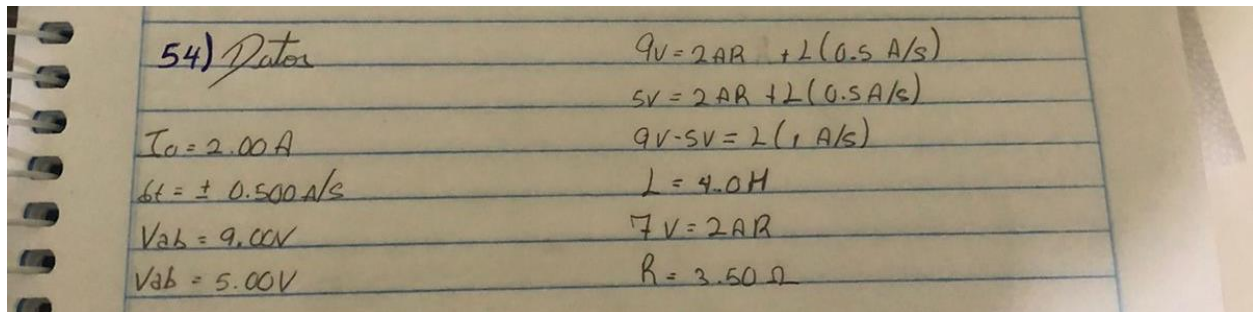 54) Datos
I0 = 2.00 A
δt = ± 0.500 A/s
Vab = 9.00V
Vab = 5.00V
9V = 2AR + L(0.5 A/s)
5V = 2AR + L(0.5 A/s)
9V-5V = L(1 A/s)
L = 4.0H
7V = 2AR
R = 3.50 Ω